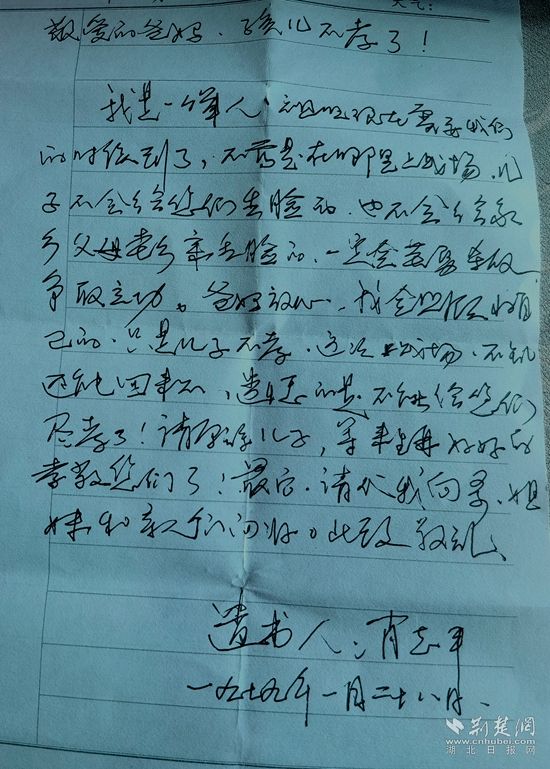 天气:
敬爱的爸妈、孩儿不孝了！
我是一个军人，祖国现在需要我们
的时候到了，不管是在哪里上战场，儿
子不会给您们丢脸的，也不会给家
乡父母老乡亲丢脸的，一定会英勇杀敌
争取立功。爸妈放心，我会照顾好自
己的，只是儿子不孝，这次上战场，不知
还能回来不，遗憾的是不能给您们
尽孝了！请原谅儿子，等来生再好好的
孝敬您们了！最后，请代我向哥、姐
妹和亲人们问好。此致敬礼、
遗书人：肖志平
一九七九年一月二十八日.
荆楚网
www.cnhubei.com
湖北日报网